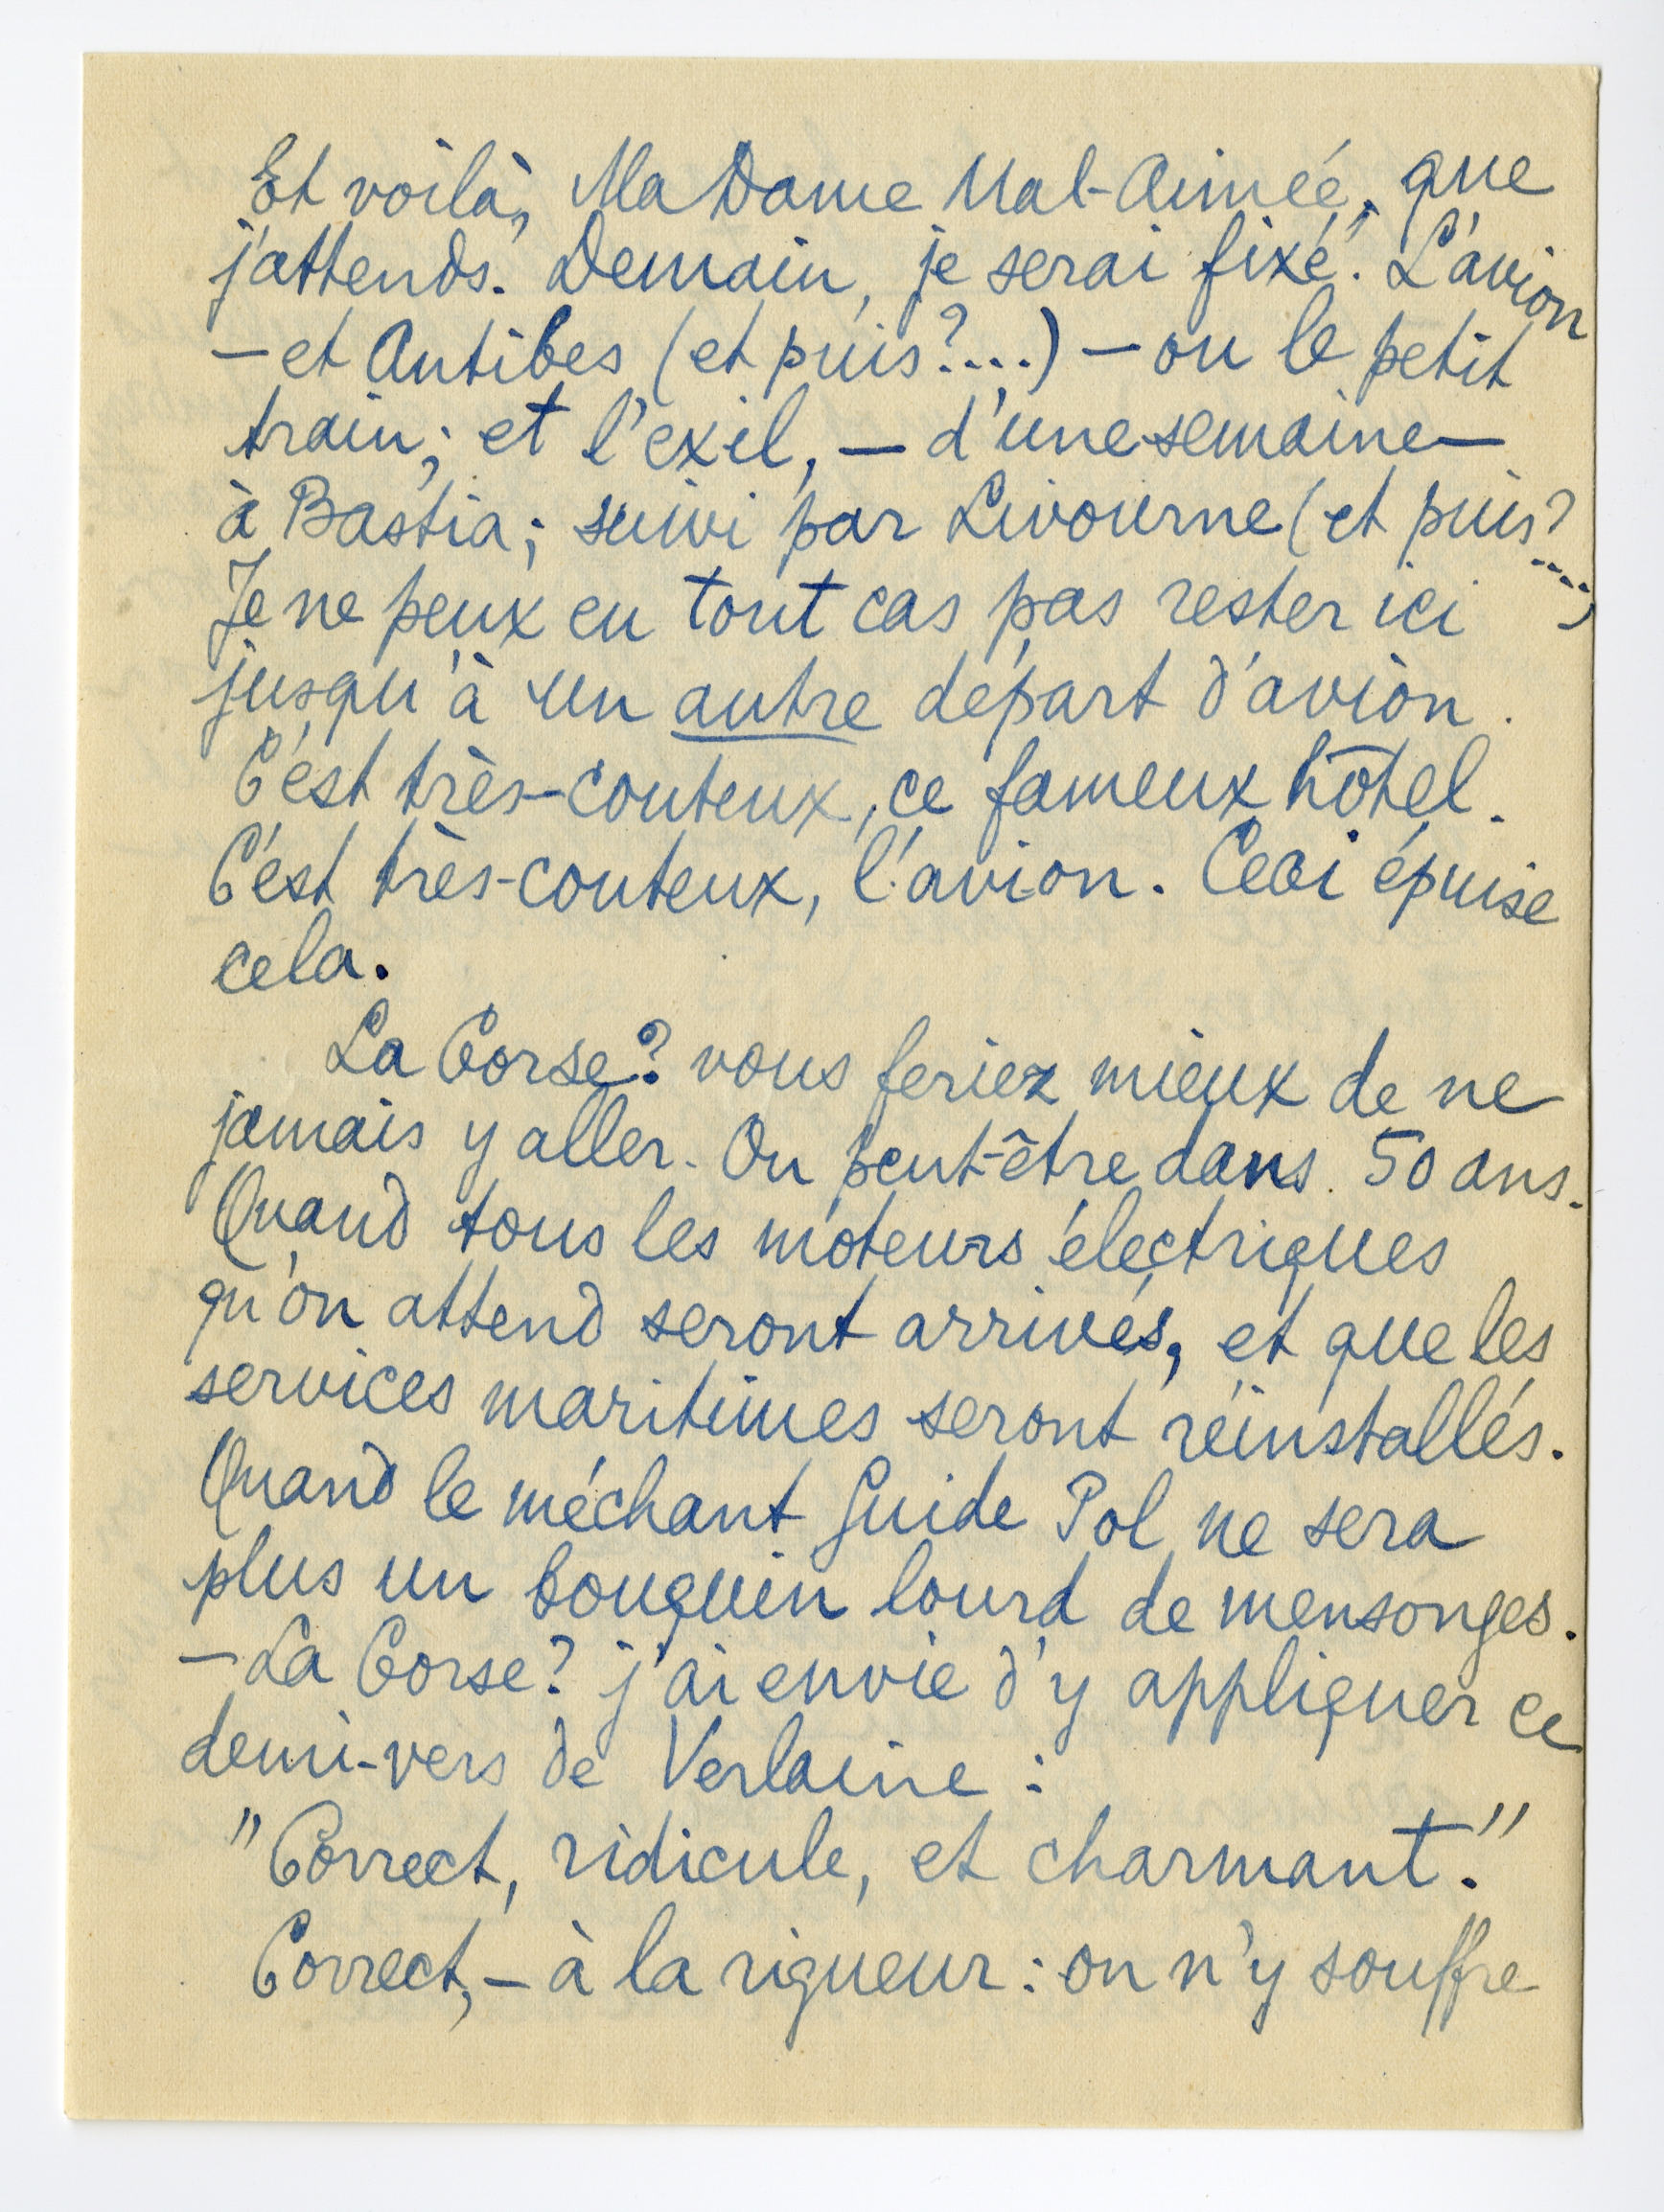 Et voilà, Ma Dame Mal-Aimée, que
j'attends. Demain, je serai fixé. L'avion
— et Antibes (et puis?....) — ou le petit
train; et l'exil, — d'une semaine —
à Bastia; suivi par Livourne (et puis?....)
Je ne peux en tout cas pas rester ici
jusqu'à un autre départ d'avion.
C'est très-couteux, ce fameux hôtel.
C'est très-couteux, l'avion. Ceci épuise
cela.
La Corse? vous feriez mieux de ne
jamais y aller. Ou peut-être dans 50 ans.
Quand tous les moteurs électriques
qu'on attend seront arrivés, et que les
services maritimes seront réinstallés.
Quand le méchant Guide Pol ne sera
plus un bouquin lourd de mensonges.
— La Corse? j'ai envie d'y appliquer ce
demi-vers de Verlaine :
"Correct, ridicule, et charmant."
Correct, — à la rigueur : on n'y souffre